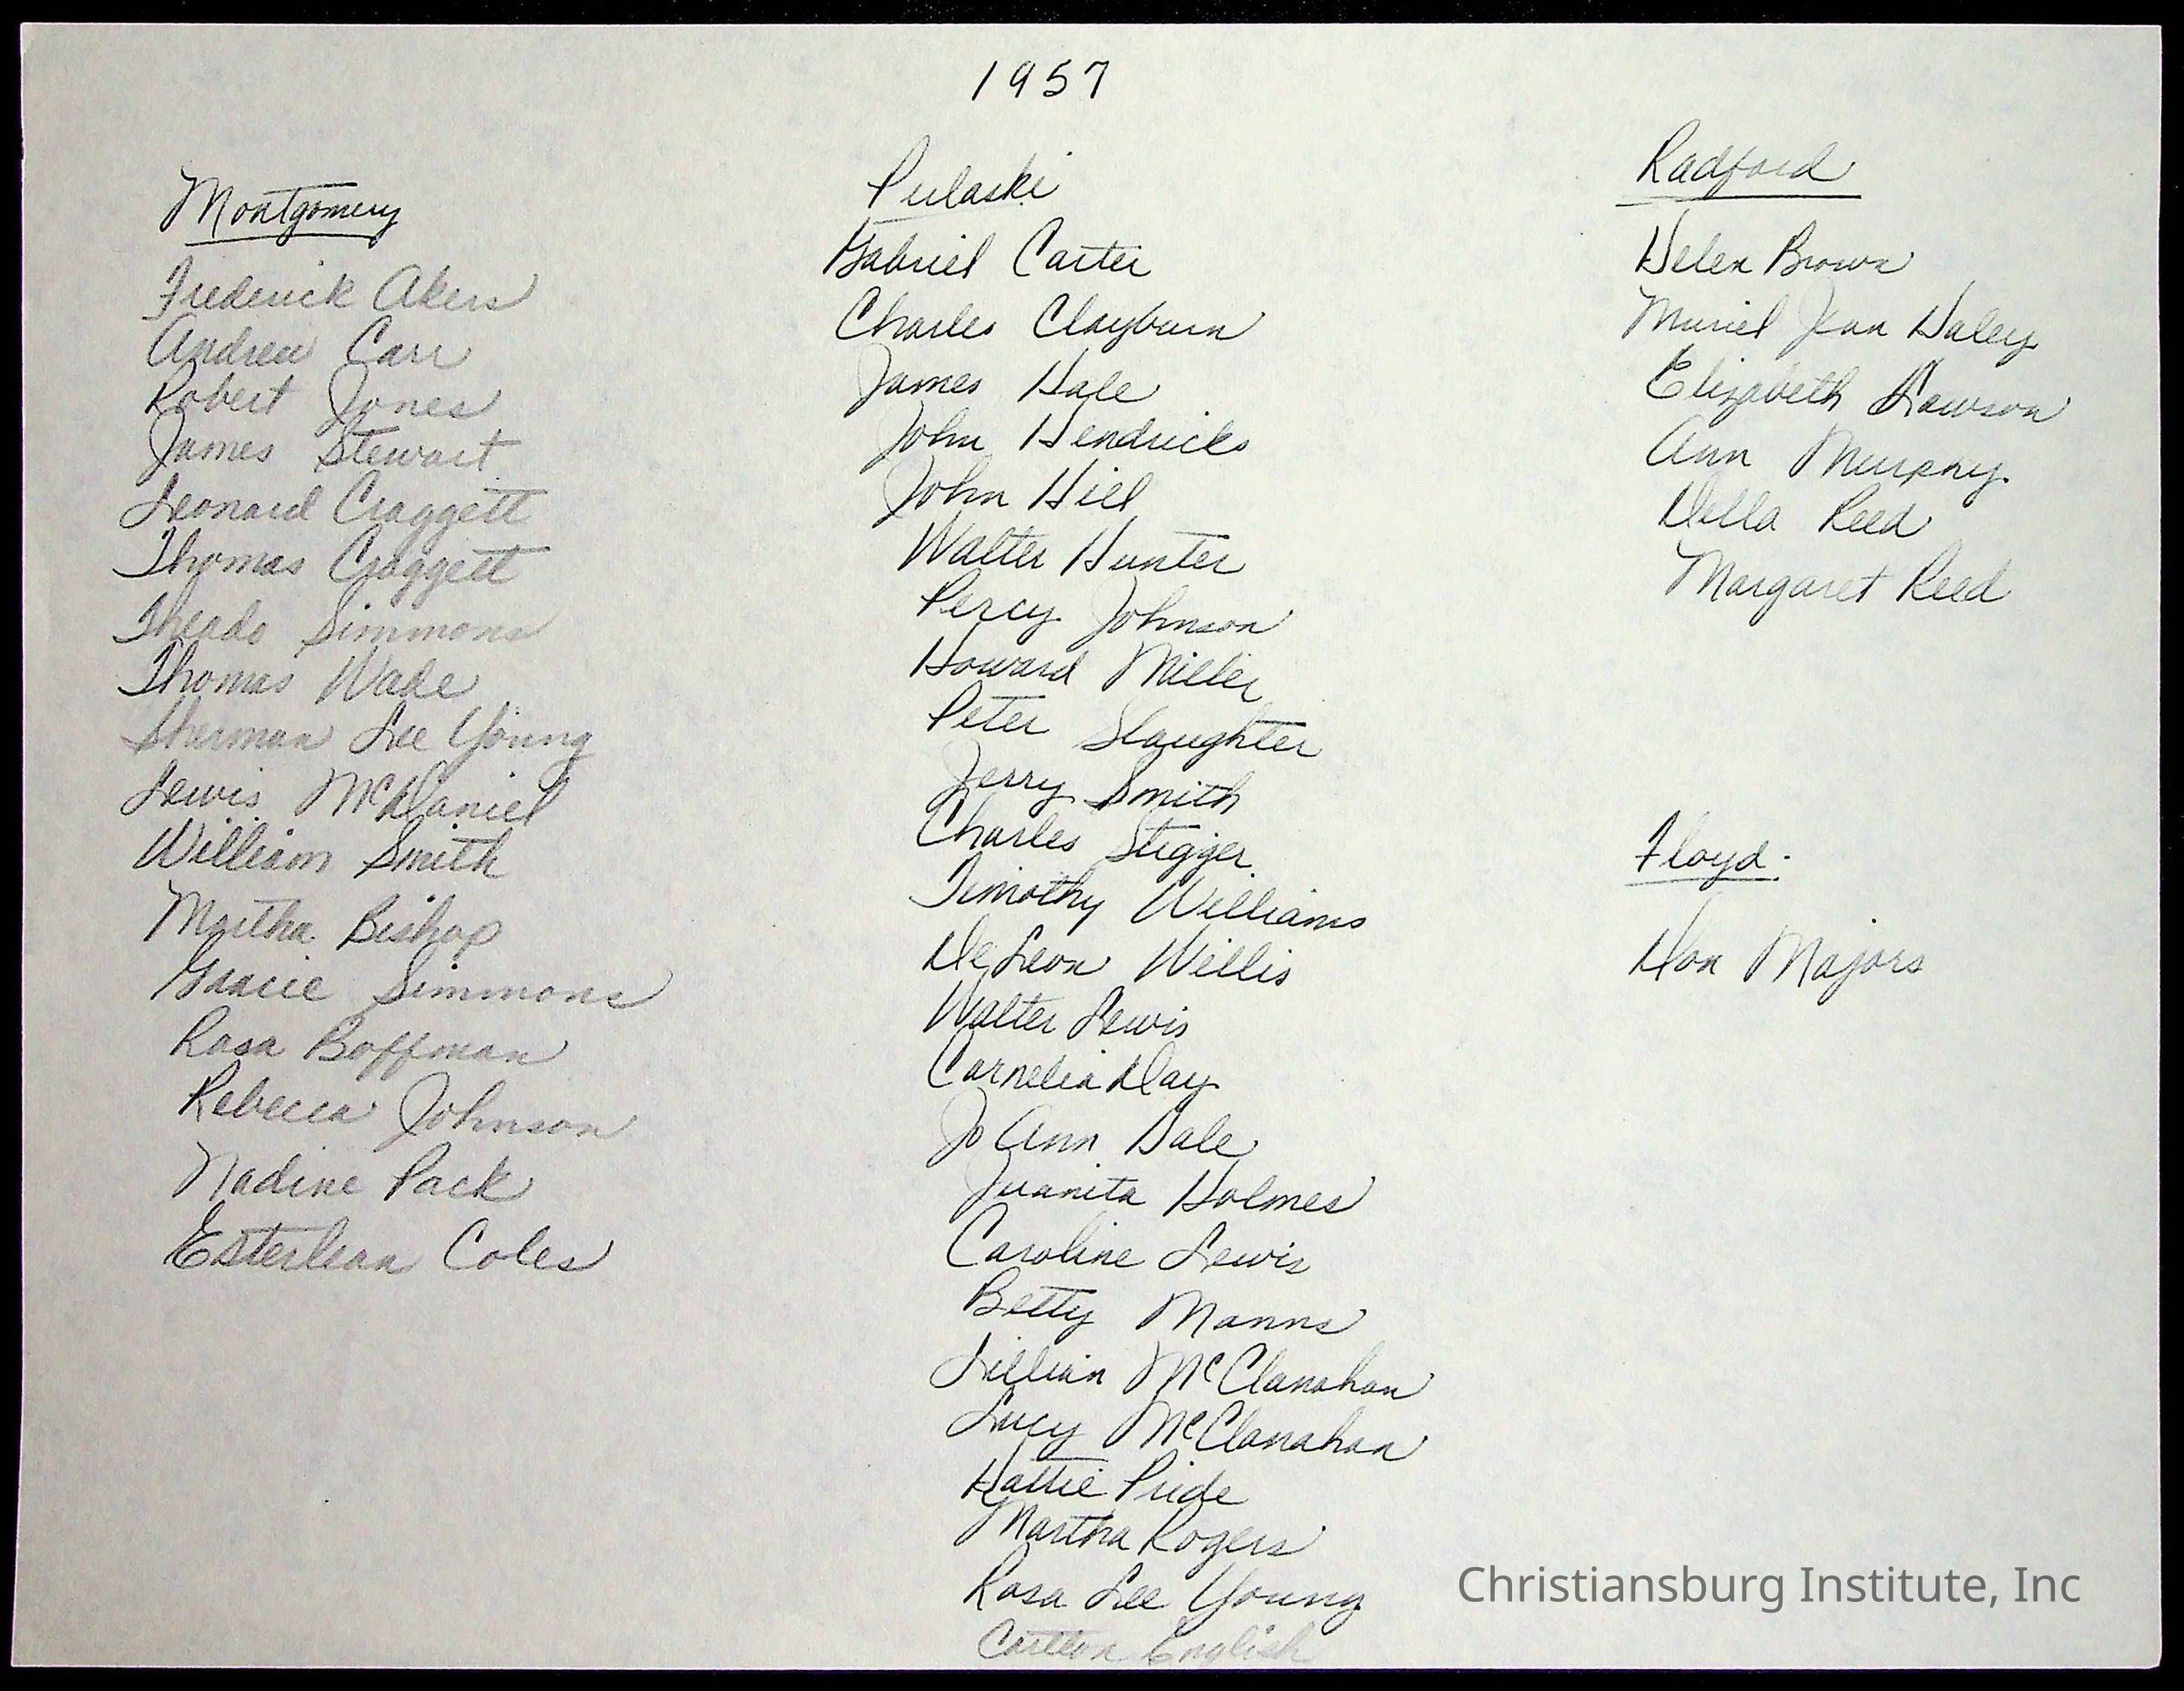 1957
Montgomery
Frederick Akers
Andrew Carr
Robert Jones
James Stewart
Leonard Craggett
Thomas Craggett
Theado Simmons
Thomas Wade
Sherman Lee Young
Lewis McDaniel
William Smith
Martha Bishop
Gracie Simmons
Rosa Boffman
Rebecca Johnson
Nadine Pack
Esterlean Coles
Pulaski
Gabriel Carter
Charles Clayburn
James Hale
John Hendricks
John Hill
Walter Hunter
Percy Johnson
Howard Miller
Peter Slaughter
Jerry Smith
Charles Stigger
Timothy Williams
De Leon Willis
Walter Lewis
Cornelia Day
Jo Ann Hale
Juanita Holmes
Caroline Lewis
Betty Manns
Lillian McClanahan
Lucy McClanahan
Hattie Pride
Martha Rogers
Rosa Lee Young
Carlton English
Radford
Helen Brown
Muriel Jean Haley
Elizabeth Lawson
Ann Murphy
Della Reed
Margaret Reed
Floyd:
Don Majors
Christiansburg Institute, Inc